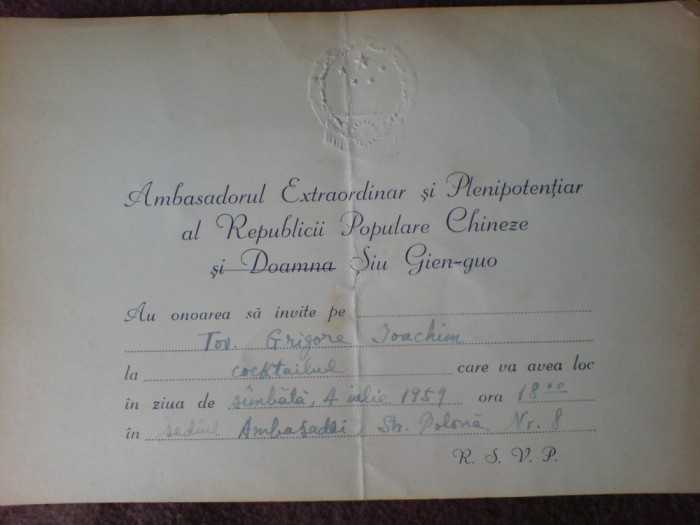 Ambasadorul Extraordinar şi Plenipotenţiar
al Republicii Populare Chineze
şi Doamna Şiu Gien-guo
Au onoarea să invite pe
Tov. Grigore Ioachim
la cocktailul care va avea loc
în ziua de sîmbătă, 4 iulie 1959 ora 18 00
în sediul Ambasadei, Str. Polonă Nr. 8
R. S. V. P.